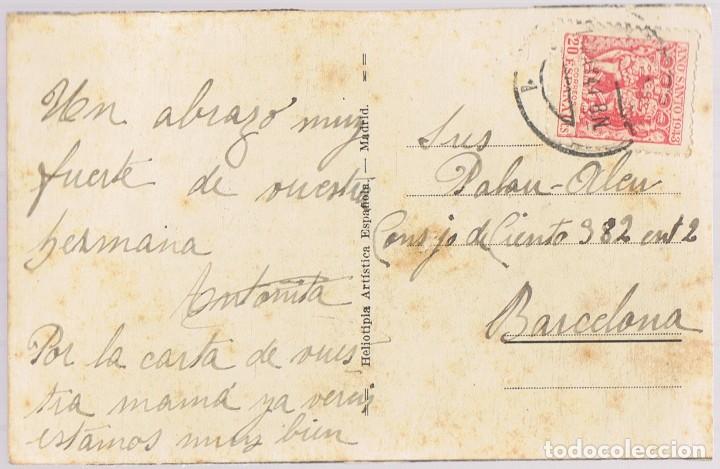 Un abrazo muy
fuerte de vuestra
hermana
Antoñita
Por la carta de vues
tra mamá ya vereis
estamos muy bien
Heliotipia Artística Española. — Madrid.
AÑO SANTO 1943
20
CORREOS
ESPAÑA
Sres
Palau-Aleu
Consejo de Ciento 382 ent 2
Barcelona
todocoleccion